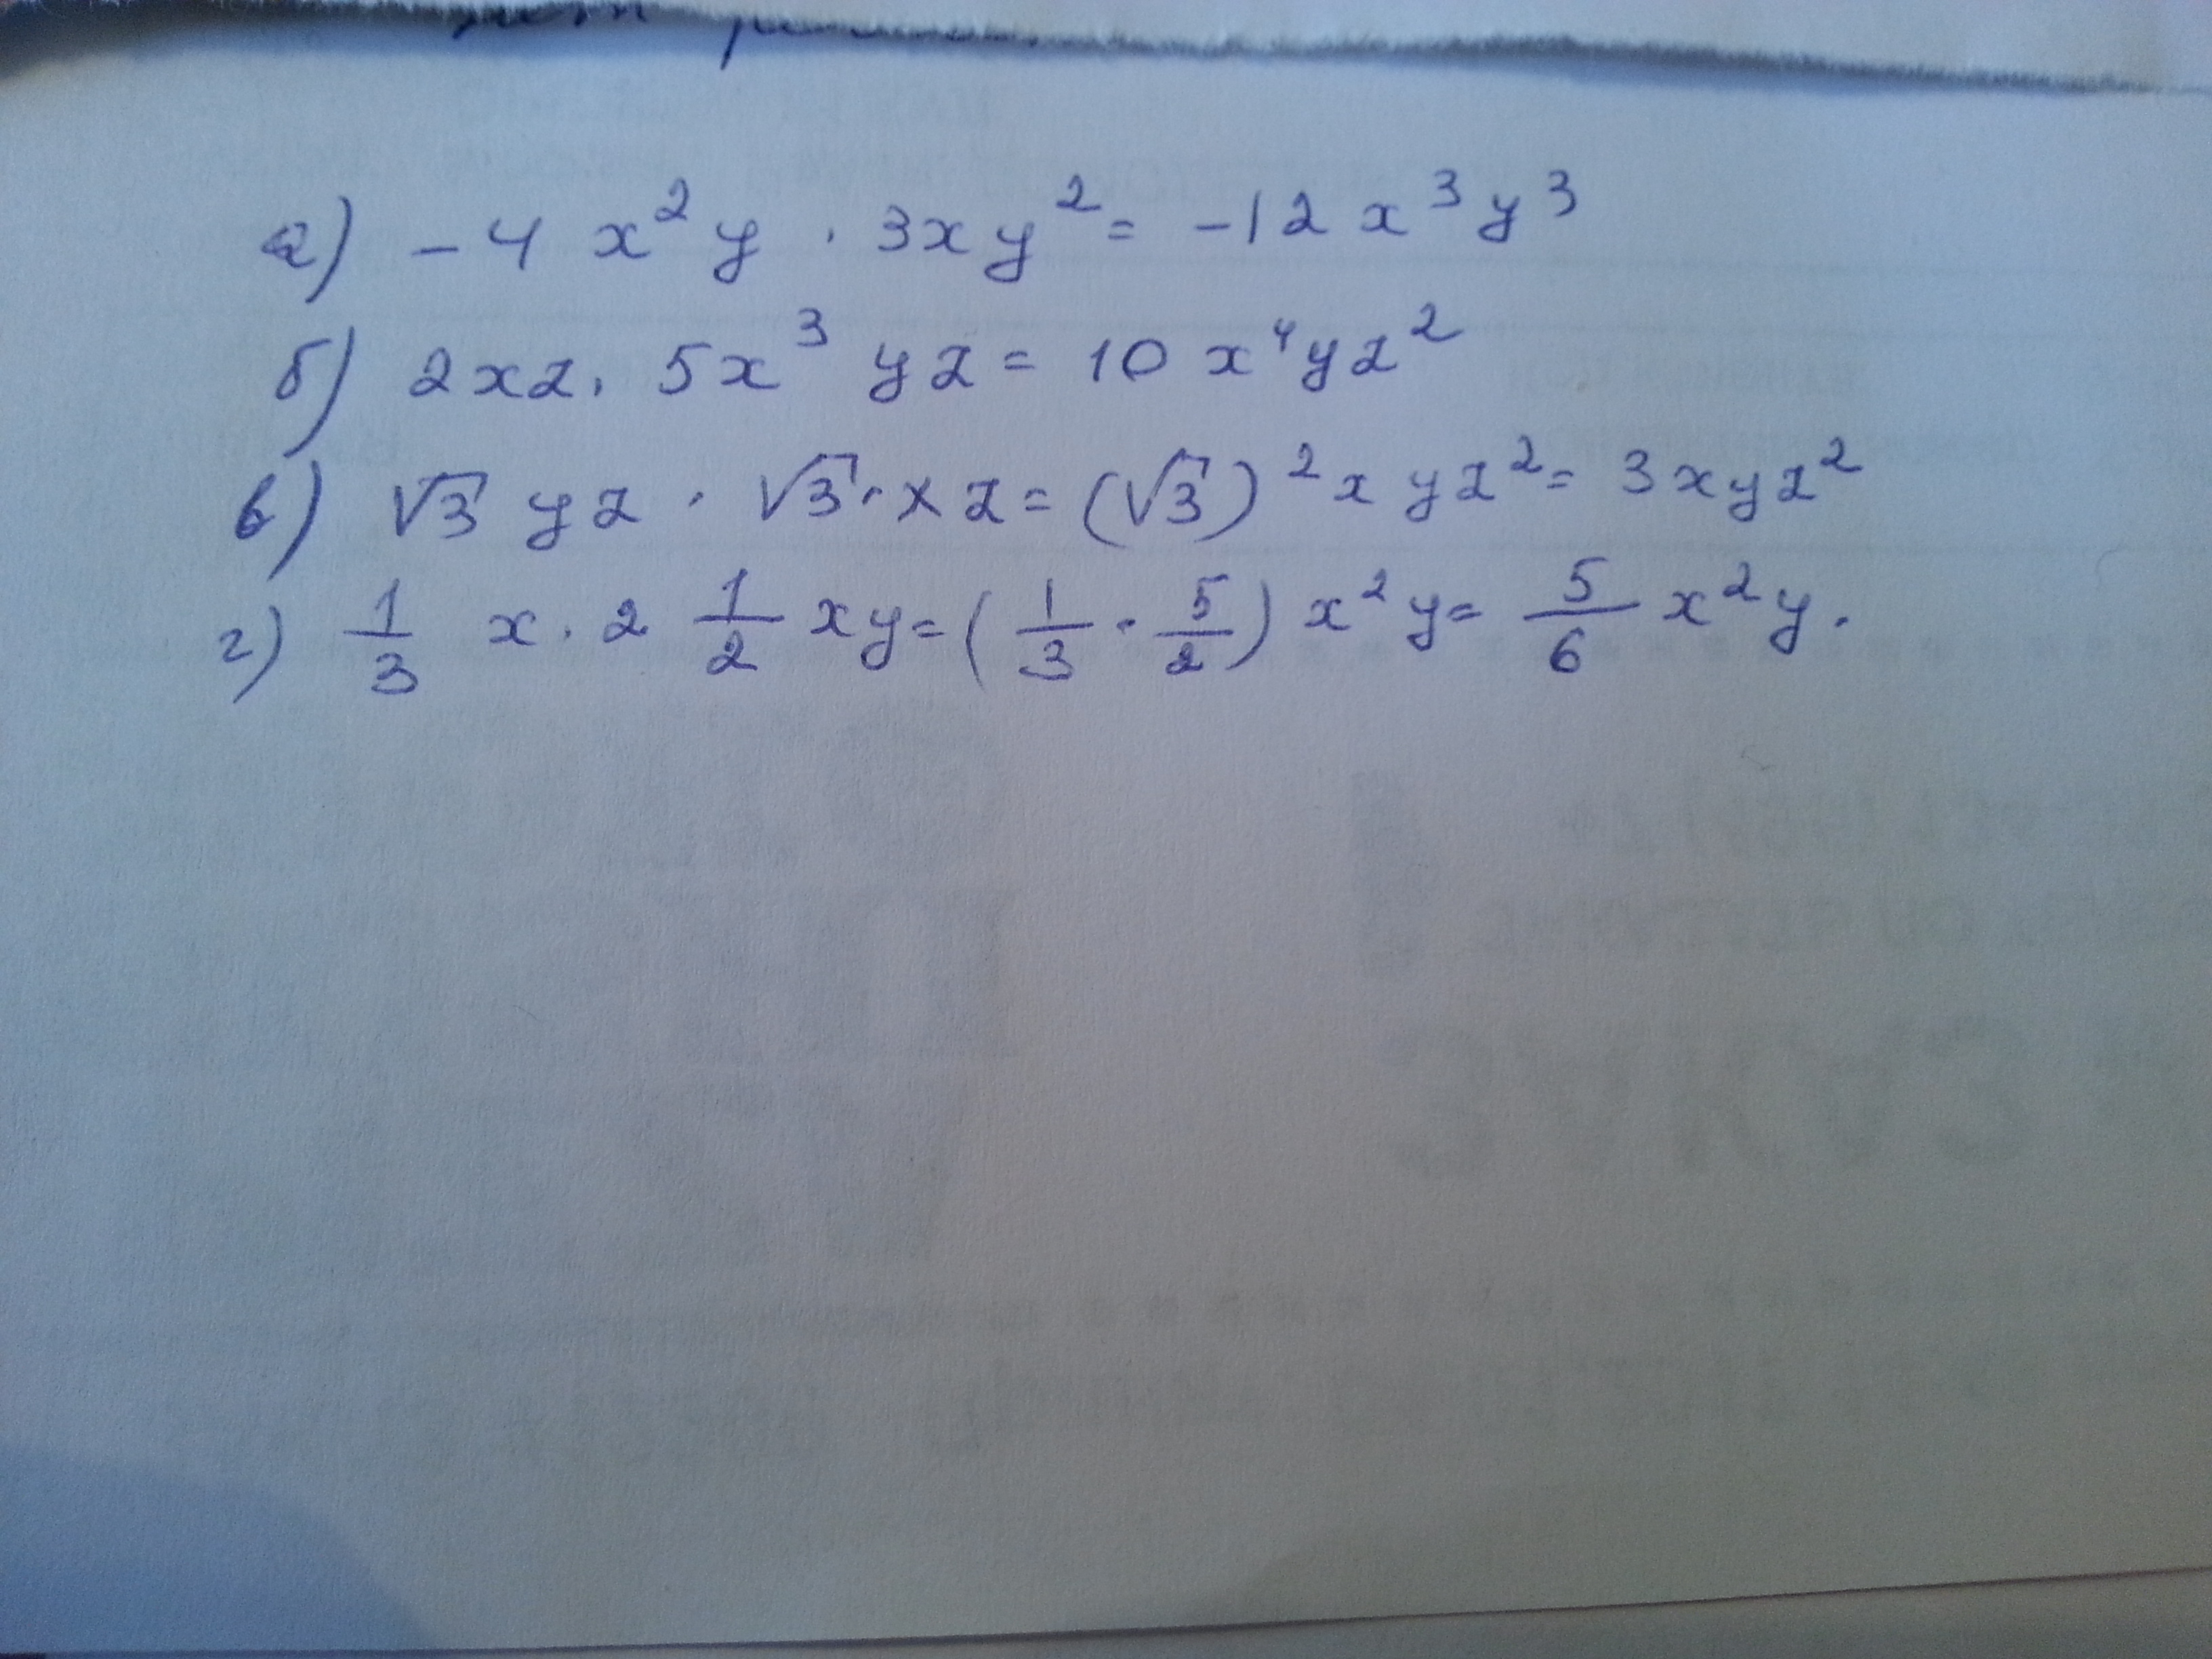 а) -4 x²y · 3xy² = -12 x³y³
б) 2xz · 5x³yz = 10 x⁴yz²
в) √3 yz · √3 · xz = (√3)² xyz² = 3xyz²
г) 1/3 x · 2 1/2 xy = (1/3 · 5/2) x²y = 5/6 x²y.